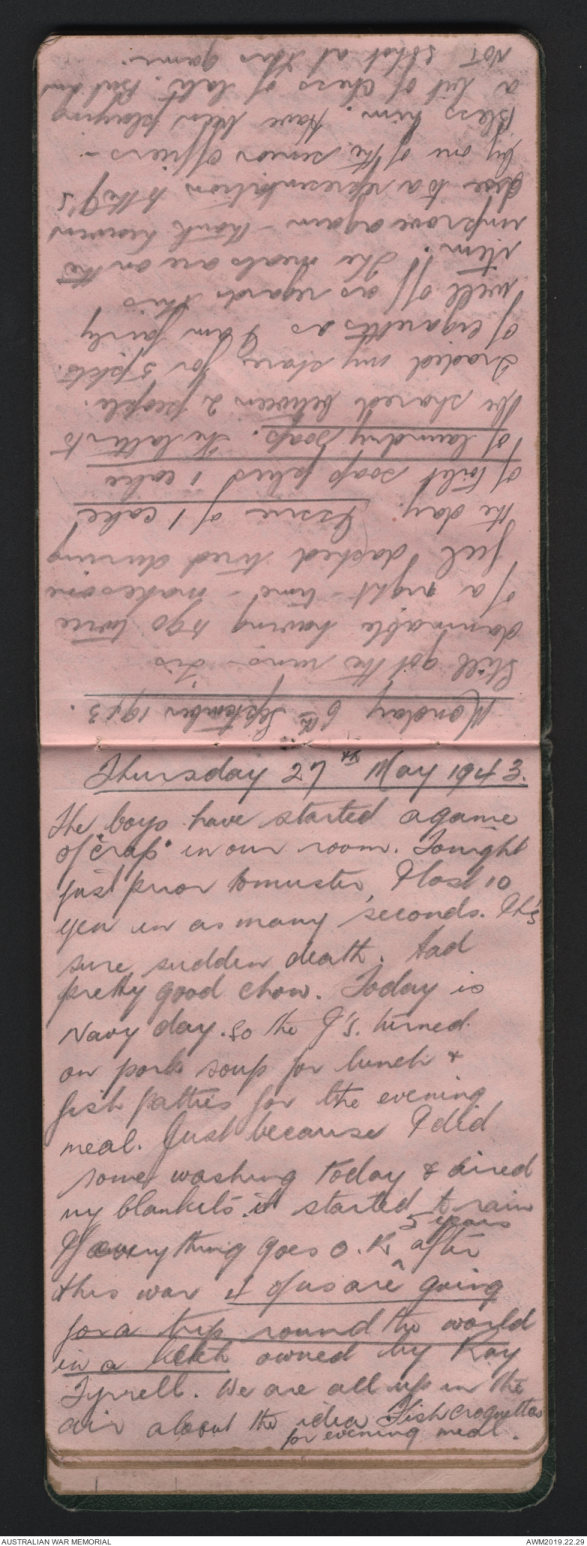 Monday 6th September 1943.
Still got the runs - It's
damnable having to go twice
of a night-time - makes one
feel dashed tired during
the day. Issue of 1 cake
of toilet soap plus 1 cake
of laundry soap. The latter to
be shared between 2 people.
Traded my share for 5 pkts.
of cigarettes as I am fairly
well off as regards this
item. The meals are on the
improve again - thank heaven
due to a representation to the J's
by one of the senior officers -
Bless him. Have been playing
a bit of chess of late. But am
NOT so hot at this game.
Thursday 27th May 1943.
The boys have started a game
of "crap" in our room. Tonight
just prior to muster, I lost 10
yen in as many seconds. It's
sure sudden death. Had
pretty good chow. Today is
Navy day. so the J's. turned
on pork soup for lunch &
fish patties for the evening
meal. Just because I did
some washing today & aired
my blankets it started to rain
If everything goes O.K. 5 years after
this war of us are going
for a trip round the world
in a ketch owned by Ray
Tyrrell. We are all up in the
air about the idea Fish croquettes
for evening meal.
AUSTRALIAN WAR MEMORIAL
AWM2019.22.29